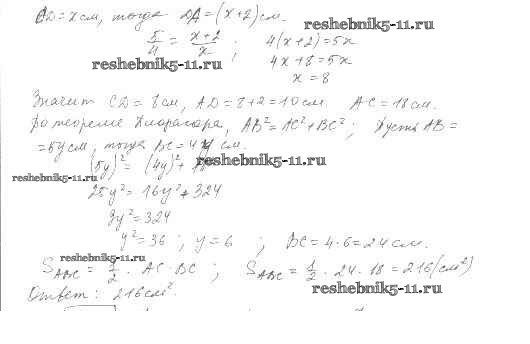 CD = x см, тогда DA = (x+2) см.
reshebnik5-11.ru
5/4 = (x+2)/x ; 4(x+2) = 5x
reshebnik5-11.ru
4x + 8 = 5x
x = 8
Значит CD = 8 см, AD = 8+2 = 10 см. AC = 18 см.
По теореме Пифагора, AB² = AC² + BC² ; Пусть AB =
= 5y см, тогда BC = 4y см.
reshebnik5-11.ru
(5y)² = (4y)² + 18²
reshebnik5-11.ru
25y² = 16y² + 324
9y² = 324
y² = 36 ; y = 6 ; BC = 4·6 = 24 см.
reshebnik5-11.ru
S ABC = 1/2 · AC · BC ; S ABC = 1/2 · 24 · 18 = 216 (см²)
Ответ: 216 см².
reshebnik5-11.ru